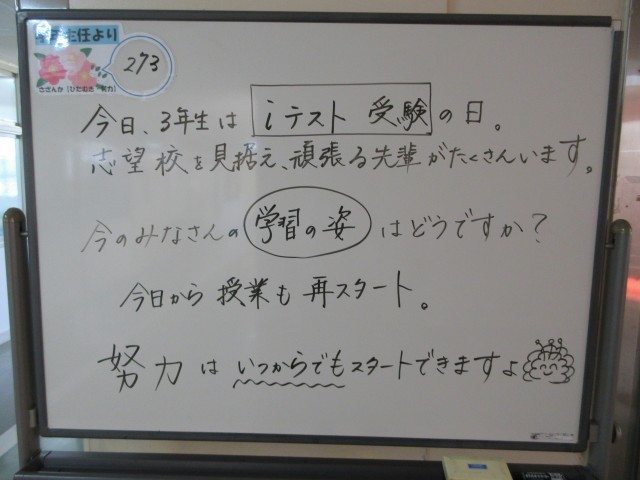 主任より
273
さざんか(ひたむき 努力)
今日、3年生は iテスト 受験 の日。
志望校を見据え、頑張る先輩がたくさんいます。
今のみなさんの 学習の姿 はどうですか?
今日から 授業も 再スタート。
努力は いつからでもスタートできますよ